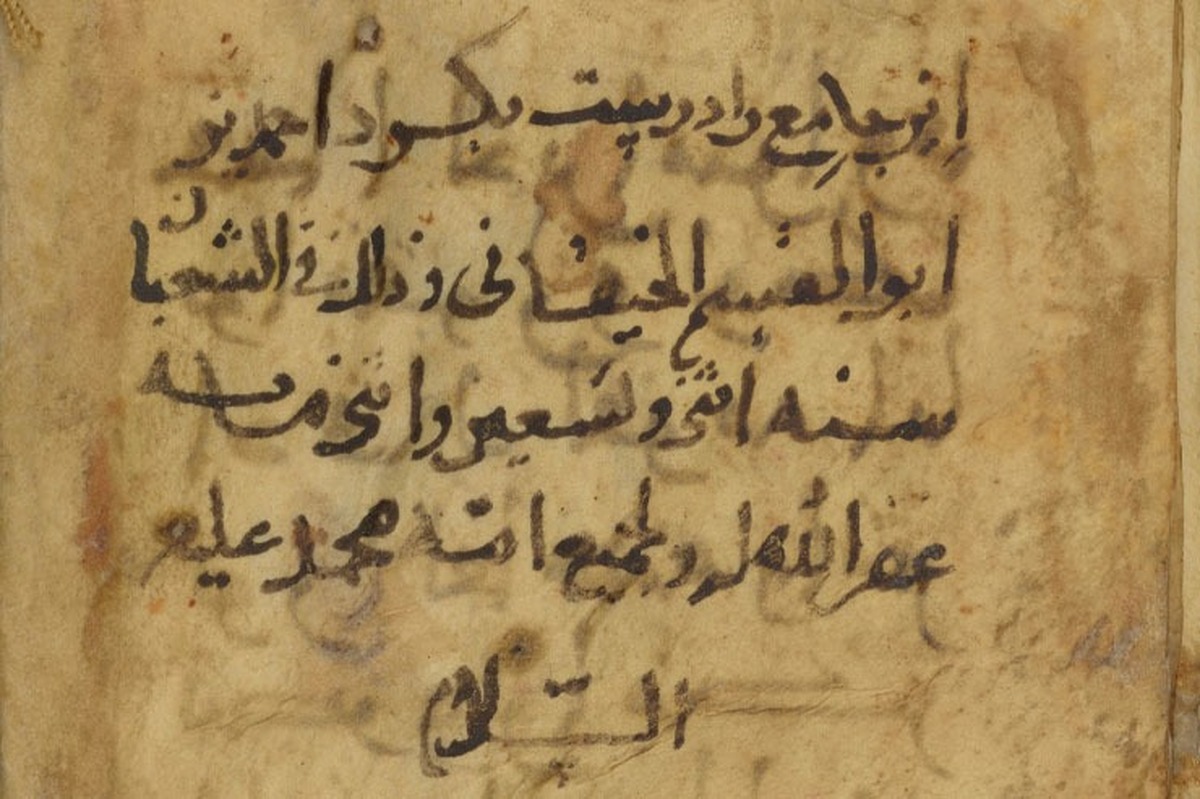 این جامع را درست بكرد احمد بن
ابو القسم الخيقانى و ذلك فى الشعبان
سنه اثنى و تسعين و اثنى مايه
غفر الله له و لجميع امته محمد عليه
السلام